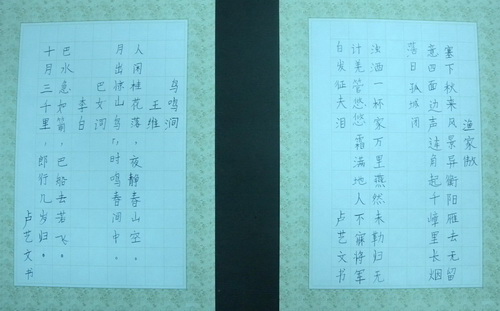 渔家傲
塞下秋来风景异衡阳雁去无留
意四面边声连角起千嶂里长烟
落日孤城闭
浊酒一杯家万里燕然未勒归无
计羌管悠悠霜满地人不寐将军
白发征夫泪 卢艺文书
鸟鸣涧
王维
人闲桂花落，夜静春山空。
月出惊山鸟，时鸣春涧中。
巴女词
李白
巴水急如箭，巴船去若飞。
十月三千里，郎行几岁归。
卢艺文书